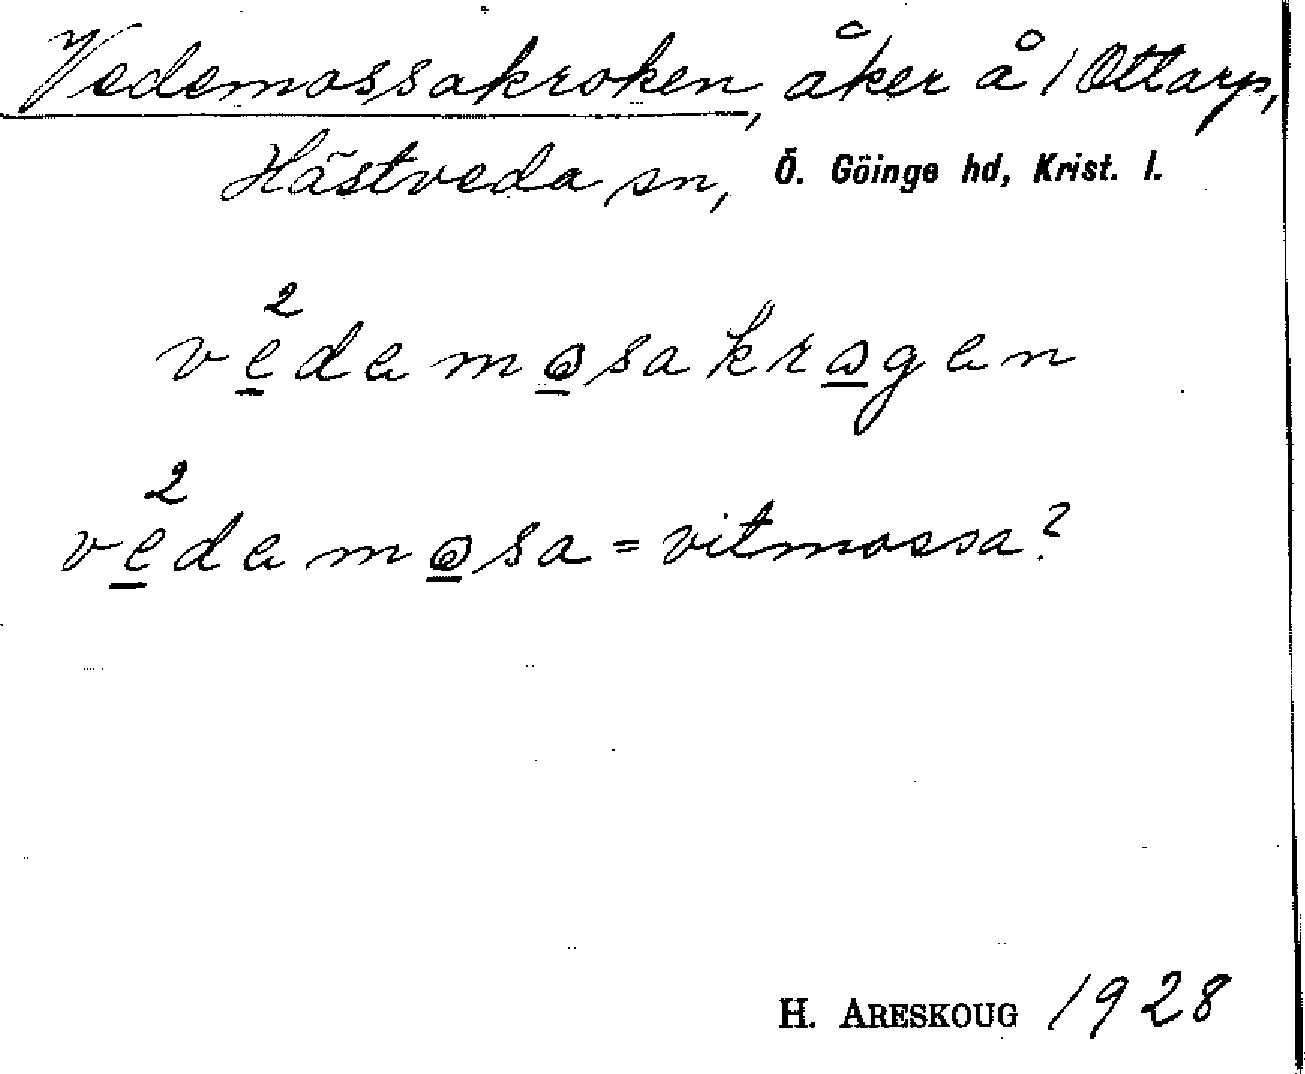 Vedemossakroken, åker å 1 Ottarp,
Hästveda sn, Ö. Göinge hd, Krist. l.
ve̲²demo̲sakro̲gen
ve̲²demo̲sa = vitmossa?
H. ARESKOUG 1928